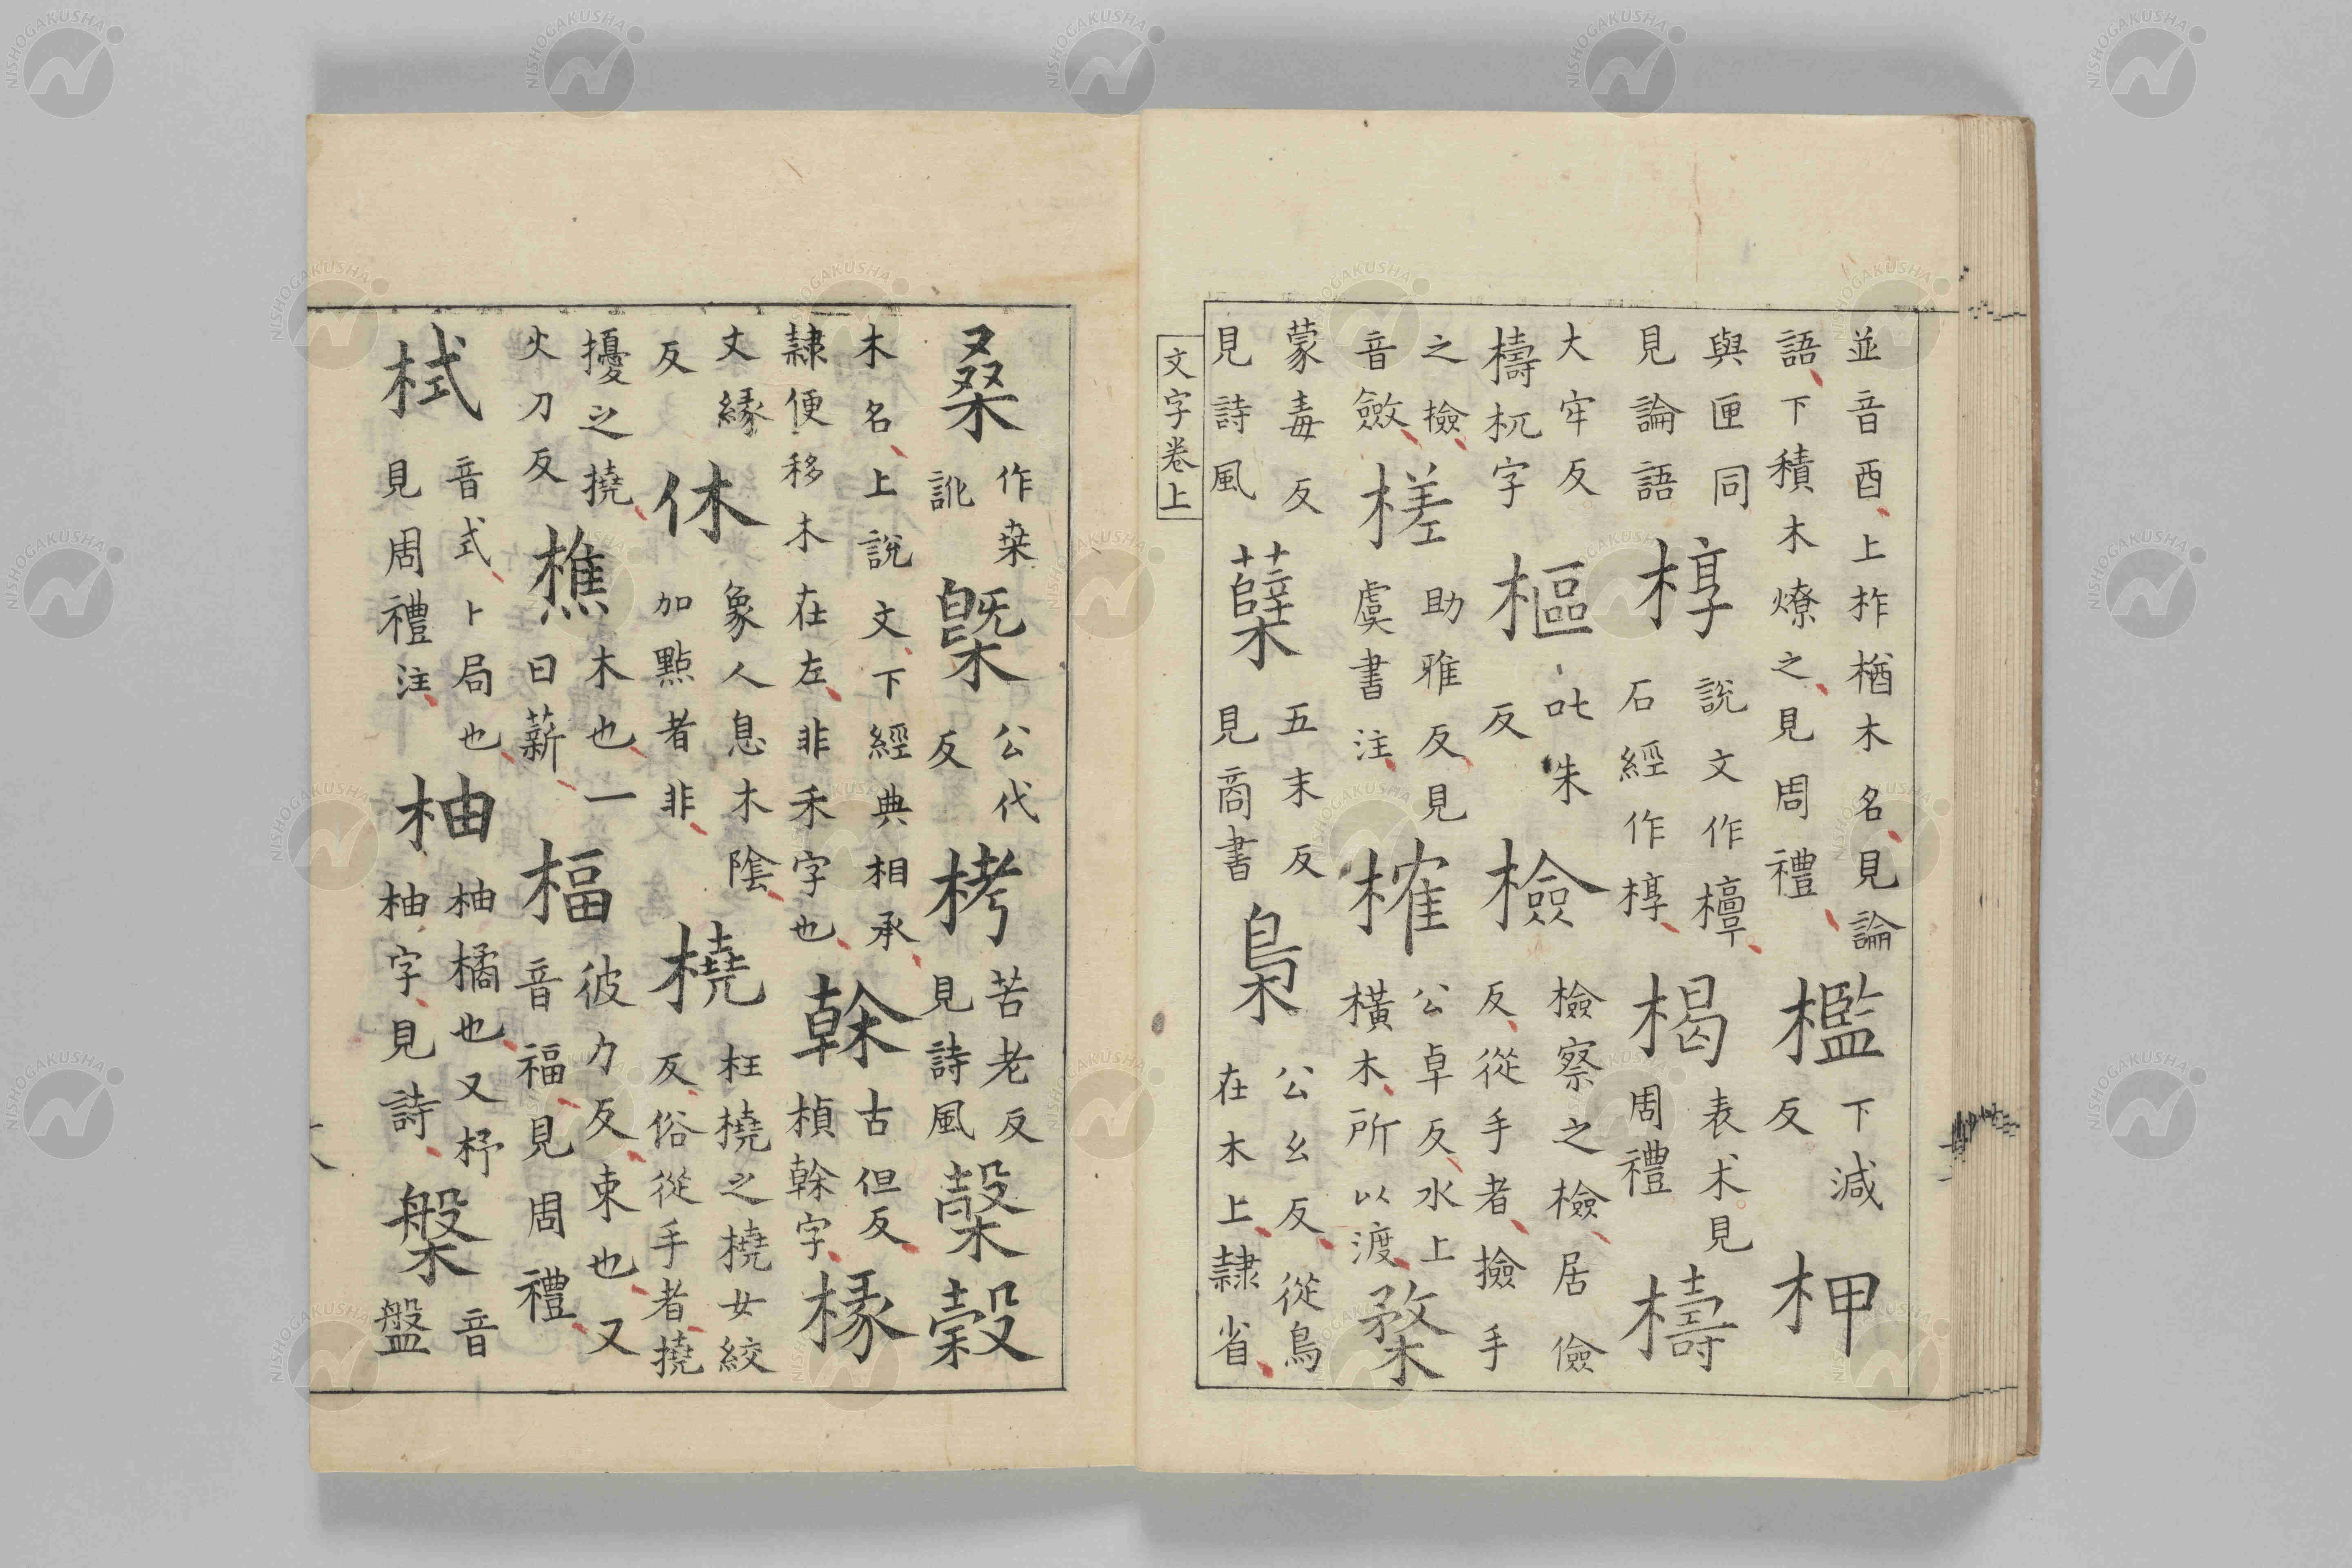 並音酉上柞楢木名見論語下積木燎之見周禮檻下減反柙
與匣同見論語椁說文作𣞤石經作椁楬表朮見周禮檮
大牢反檮杌字樞叱朱反檢檢察之檢居儉反從手者撿手
之撿音斂槎助雅反見虞書注榷公卓反水上橫木所以渡楘
蒙毒反見詩風蘖五末反見商書梟公幺反從鳥在木上隸省
文字卷上
桑作桒訛槩公代反栲苦老反見詩風榖榖
木名上說文下經典相承隸便移木在左非禾字也榦古但反楨榦字椽
丈緣反休象人息木陰加點者非橈枉橈之橈女絞反俗從手者撓
擾之撓火刀反樵木也一曰薪楅彼力反束也又音福見周禮
栻音式卜局也見周禮注柚柚橘也又杼柚字見詩槃音盤